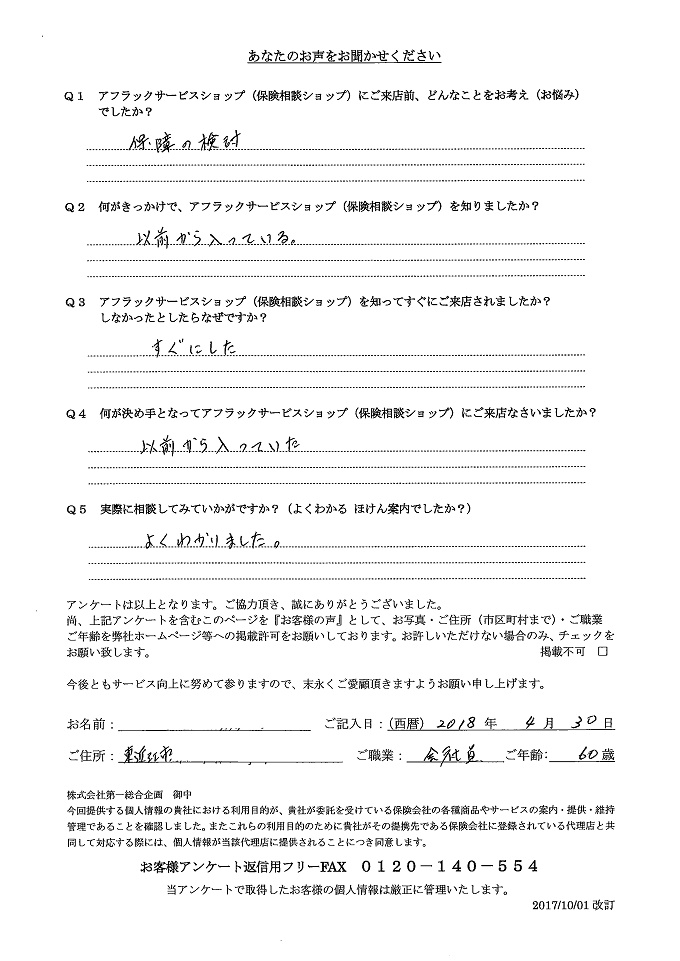 あなたのお声をお聞かせください
Q1 アフラックサービスショップ（保険相談ショップ）にご来店前、どんなことをお考え（お悩み）
でしたか？
保障の検討
Q2 何がきっかけで、アフラックサービスショップ（保険相談ショップ）を知りましたか？
以前から入っている。
Q3 アフラックサービスショップ（保険相談ショップ）を知ってすぐにご来店されましたか？
しなかったとしたらなぜですか？
すぐにした
Q4 何が決め手となってアフラックサービスショップ（保険相談ショップ）にご来店なさいましたか？
以前から入っていた
Q5 実際に相談してみていかがですか？（よくわかる ほけん案内でしたか？）
よくわかりました。
アンケートは以上となります。ご協力頂き、誠にありがとうございました。
尚、上記アンケートを含むこのページを『お客様の声』として、お写真・ご住所（市区町村まで）・ご職業
ご年齢を弊社ホームページ等への掲載許可をお願いしております。お許しいただけない場合のみ、チェックを
お願い致します。 掲載不可 □
今後ともサービス向上に努めて参りますので、末永くご愛顧頂きますようお願い申し上げます。
お名前： ご記入日：（西暦）2018年 4月 30日
ご住所：東近江市 ご職業：会社員 ご年齢：60歳
株式会社第一総合企画 御中
今回提供する個人情報の貴社における利用目的が、貴社が委託を受けている保険会社の各種商品やサービスの案内・提供・維持
管理であることを確認しました。またこれらの利用目的のために貴社がその提携先である保険会社に登録されている代理店と共
同して対応する際には、個人情報が当該代理店に提供されることにつき同意します。
お客様アンケート返信用フリーFAX ０１２０－１４０－５５４
当アンケートで取得したお客様の個人情報は厳正に管理いたします。
2017/10/01 改訂